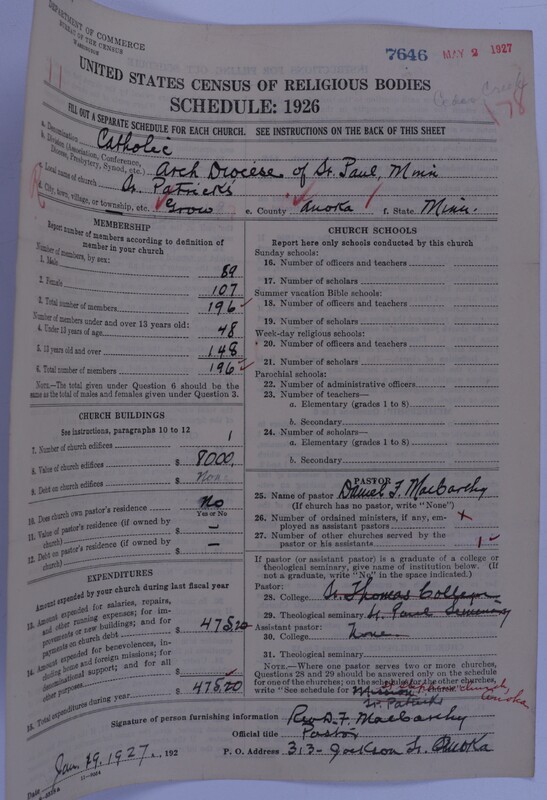 DEPARTMENT OF COMMERCE
BUREAU OF THE CENSUS
WASHINGTON
7646 MAY 2 1927
UNITED STATES CENSUS OF RELIGIOUS BODIES
SCHEDULE: 1926
178
FILL OUT A SEPARATE SCHEDULE FOR EACH CHURCH. SEE INSTRUCTIONS ON THE BACK OF THIS SHEET
a. Denomination Catholic
b. Division (Association, Conference, Diocese, Presbytery, Synod, etc.) Arch Diocese of St. Paul, Minn
c. Local name of church St. Patricks
d. City, town, village, or township, etc. Grow e. County Anoka f. State Minn.
MEMBERSHIP
Report number of members according to definition of member in your church
Number of members, by sex:
1. Male 89
2. Female 107
3. Total number of members 196
Number of members under and over 13 years old:
4. Under 13 years of age 48
5. 13 years old and over 148
6. Total number of members 196
NOTE.—The total given under Question 6 should be the same as the total of males and females given under Question 3.
CHURCH BUILDINGS
See instructions, paragraphs 10 to 12
7. Number of church edifices 1
8. Value of church edifices $ 8000,
9. Debt on church edifices $ None
10. Does church own pastor's residence? No
Yes or No
11. Value of pastor's residence (if owned by church) $ —
12. Debt on pastor's residence (if owned by church) $ —
EXPENDITURES
Amount expended by your church during last fiscal year
13. Amount expended for salaries, repairs, and other running expenses; for improvements or new buildings; and for payments on church debt $ 475.20
14. Amount expended for benevolences, including home and foreign missions; for denominational support; and for all other purposes $
15. Total expenditures during year $ 475.20
CHURCH SCHOOLS
Report here only schools conducted by this church
Sunday schools:
16. Number of officers and teachers
17. Number of scholars
Summer vacation Bible schools:
18. Number of officers and teachers
19. Number of scholars
Week-day religious schools:
20. Number of officers and teachers
21. Number of scholars
Parochial schools:
22. Number of administrative officers
23. Number of teachers—
a. Elementary (grades 1 to 8)
b. Secondary
24. Number of scholars—
a. Elementary (grades 1 to 8)
b. Secondary
PASTOR
25. Name of pastor Daniel F. MacCarthy
(If church has no pastor, write "None")
26. Number of ordained ministers, if any, employed as assistant pastors x
27. Number of other churches served by the pastor or his assistants 1
If pastor (or assistant pastor) is a graduate of a college or theological seminary, give name of institution below. (If not a graduate, write "No" in the space indicated.)
Pastor:
28. College St. Thomas College
29. Theological seminary St. Paul Seminary
Assistant pastor:
30. College None
31. Theological seminary
NOTE.—Where one pastor serves two or more churches, Questions 28 and 29 should be answered only on the schedule for one of the churches; on the schedules for the other churches, write "See schedule for church."
St. Patricks
Anoka
Signature of person furnishing information Rev D. F. MacCarthy
Official title Pastor
Date Jan. 19, 1927, 192 P. O. Address 313- Jackson St. Anoka